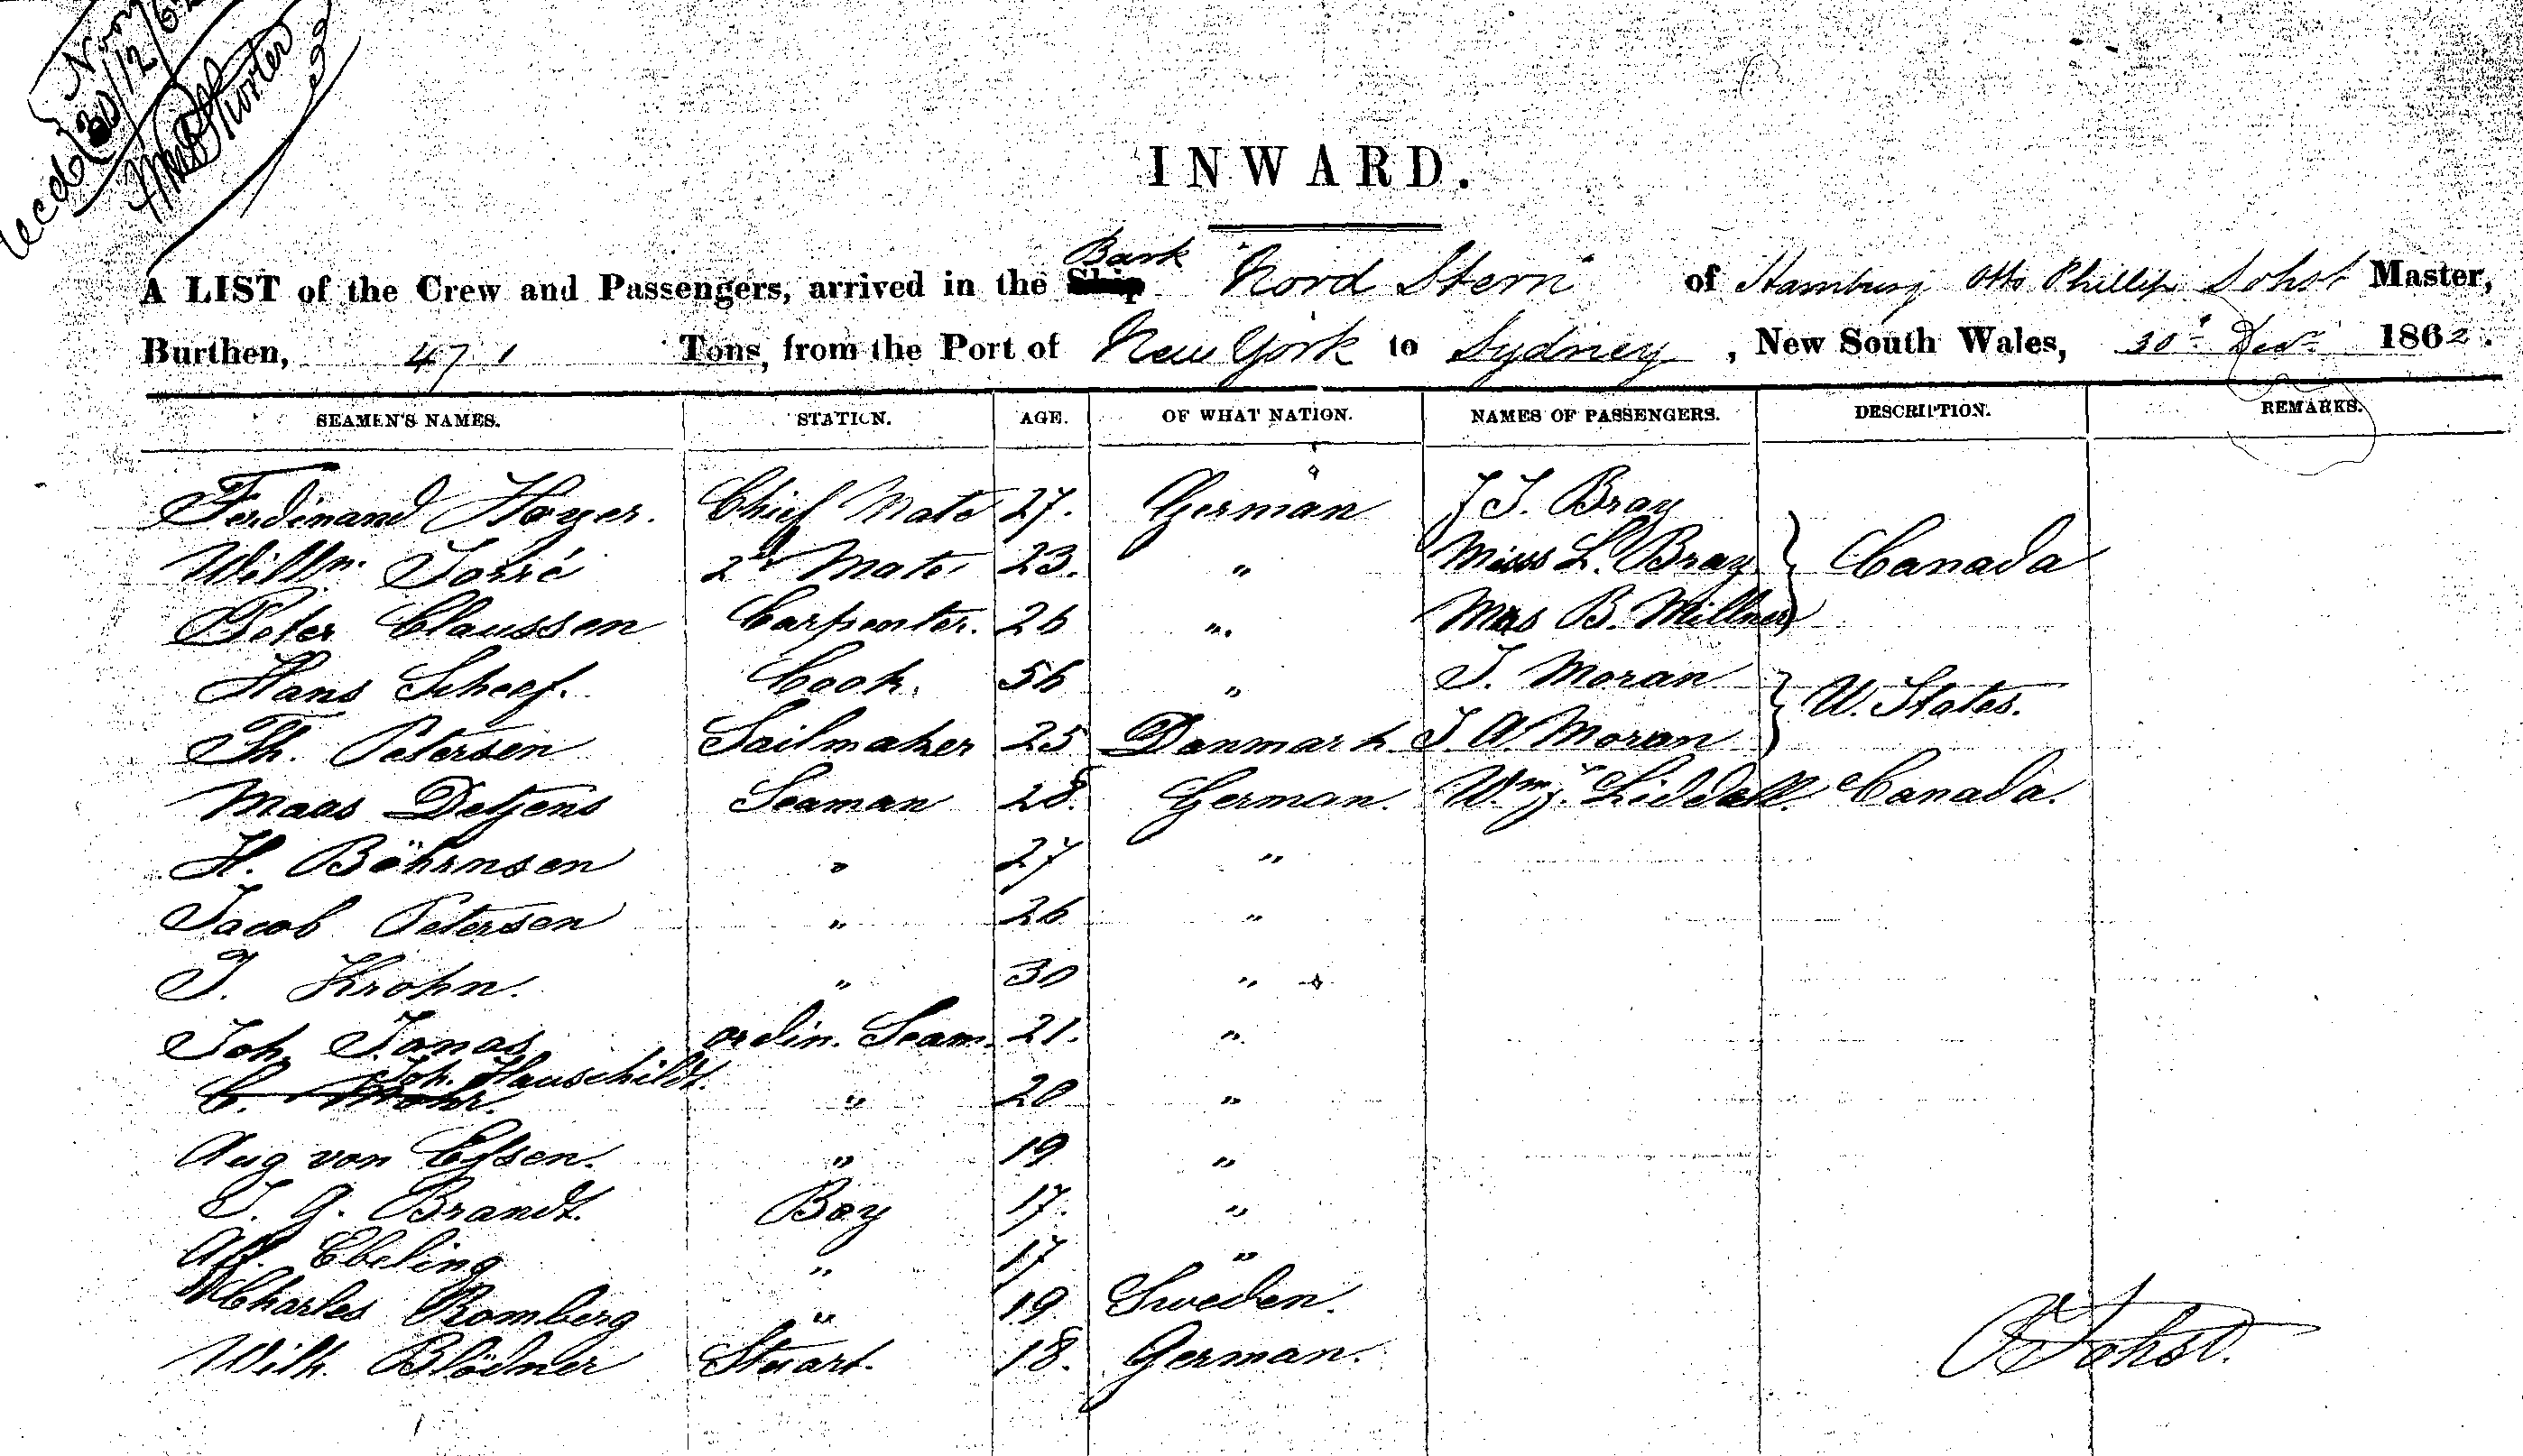 Recd 30/12/62
INWARD.
Bark
A LIST of the Crew and Passengers, arrived in the Ship "Nord Stern" of Hamburg Otto Phillip Sohst Master,
Burthen, 471 Tons, from the Port of New York to Sydney, New South Wales, 30th Decr 1862.
SEAMEN'S NAMES. STATION. AGE. OF WHAT NATION. NAMES OF PASSENGERS. DESCRIPTION. REMARKS.
Ferdinand Hoyer. Chief Mate 27. German J J. Bray
Willm. Torré 2d Mate 23. " Miss L. Bray } Canada
Peter Claussen Carpenter. 26 " Mrs B. Millner
Hans Scheef. Cook. 56 " J. Moran } U. States.
Th. Petersen Sailmaker 25 Danmark J. A. Moran
Maas Detjens Seaman 28. German. Wm J. Liddell. Canada.
H. Böhrnsen " 27 "
Jacob Petersen " 26 "
J. Krohn. " 30 "
Joh. Jonas ordin. Seam. 21. "
Joh. Hauschildt.
C. Mohr. " 20 "
Aug von Essen. " 19 "
J. G. Brandt. Boy 17. "
Alf. Ebeling " 17 "
Charles Romberg " 19. Sweden.
Wilh. Blödner Stuart. 18. German.
O P Sohst.